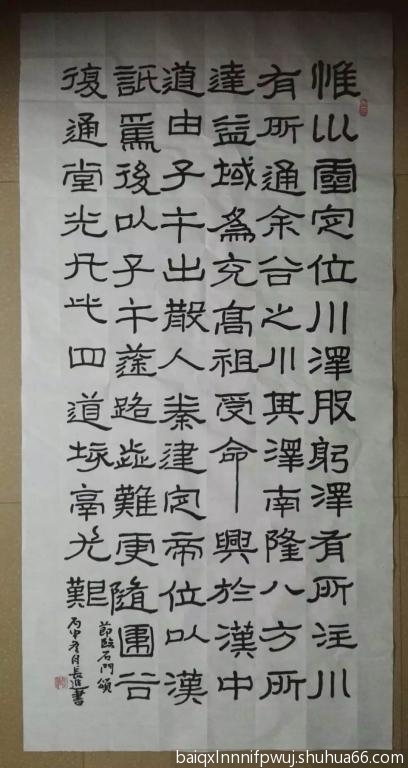 惟巛靈定位川澤股躬澤有所注川
有所通余谷之川其澤南隆八方所
達益域為充高祖受命興於漢中
道由子午出散入秦建定帝位以漢
詆焉後以子午途路歰難更隨圍谷
復通堂光凡此四道垓鬲尤艱
節臨石門頌
丙申冬月長進書
baiqxlnnnifpwuj.shuhua66.com